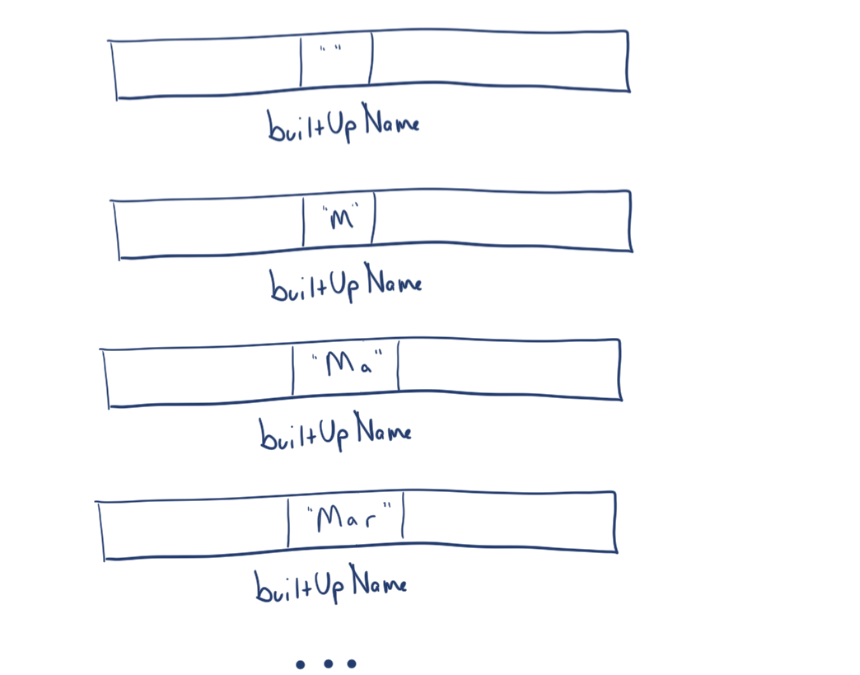 " "
builtUpName
"M"
builtUpName
"Ma"
builtUpName
"Mar"
builtUpName
...